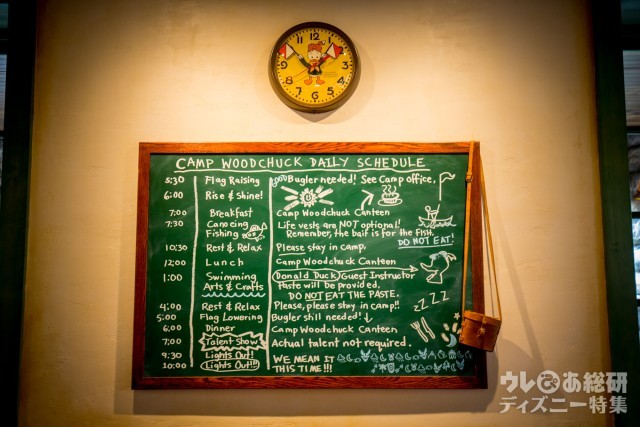 12
1
2
3
4
5
6
7
8
9
10
11
CAMP WOODCHUCK DAILY SCHEDULE
5:30 Flag Raising Good Bugler needed! See Camp office.
6:00 Rise & Shine!
7:00 Breakfast Camp Woodchuck Canteen
7:30 Canoeing Life vests are NOT optional!
Fishing Remember, the bait is for the fish.
DO NOT EAT!
10:30 Rest & Relax Please stay in camp.
12:00 Lunch Camp Woodchuck Canteen
1:00 Swimming Donald Duck Guest Instructor
Arts & Crafts Paste will be provided.
DO NOT EAT THE PASTE.
4:00 Rest & Relax Please, please stay in camp!!
zZZZ
5:00 Flag Lowering Bugler still needed!
6:00 Dinner Camp Woodchuck Canteen
7:00 Talent Show Actual talent not required.
9:30 Lights Out! WE MEAN IT
10:00 Lights Out!!! THIS TIME!!!
ウレぴあ総研
ディズニー特集